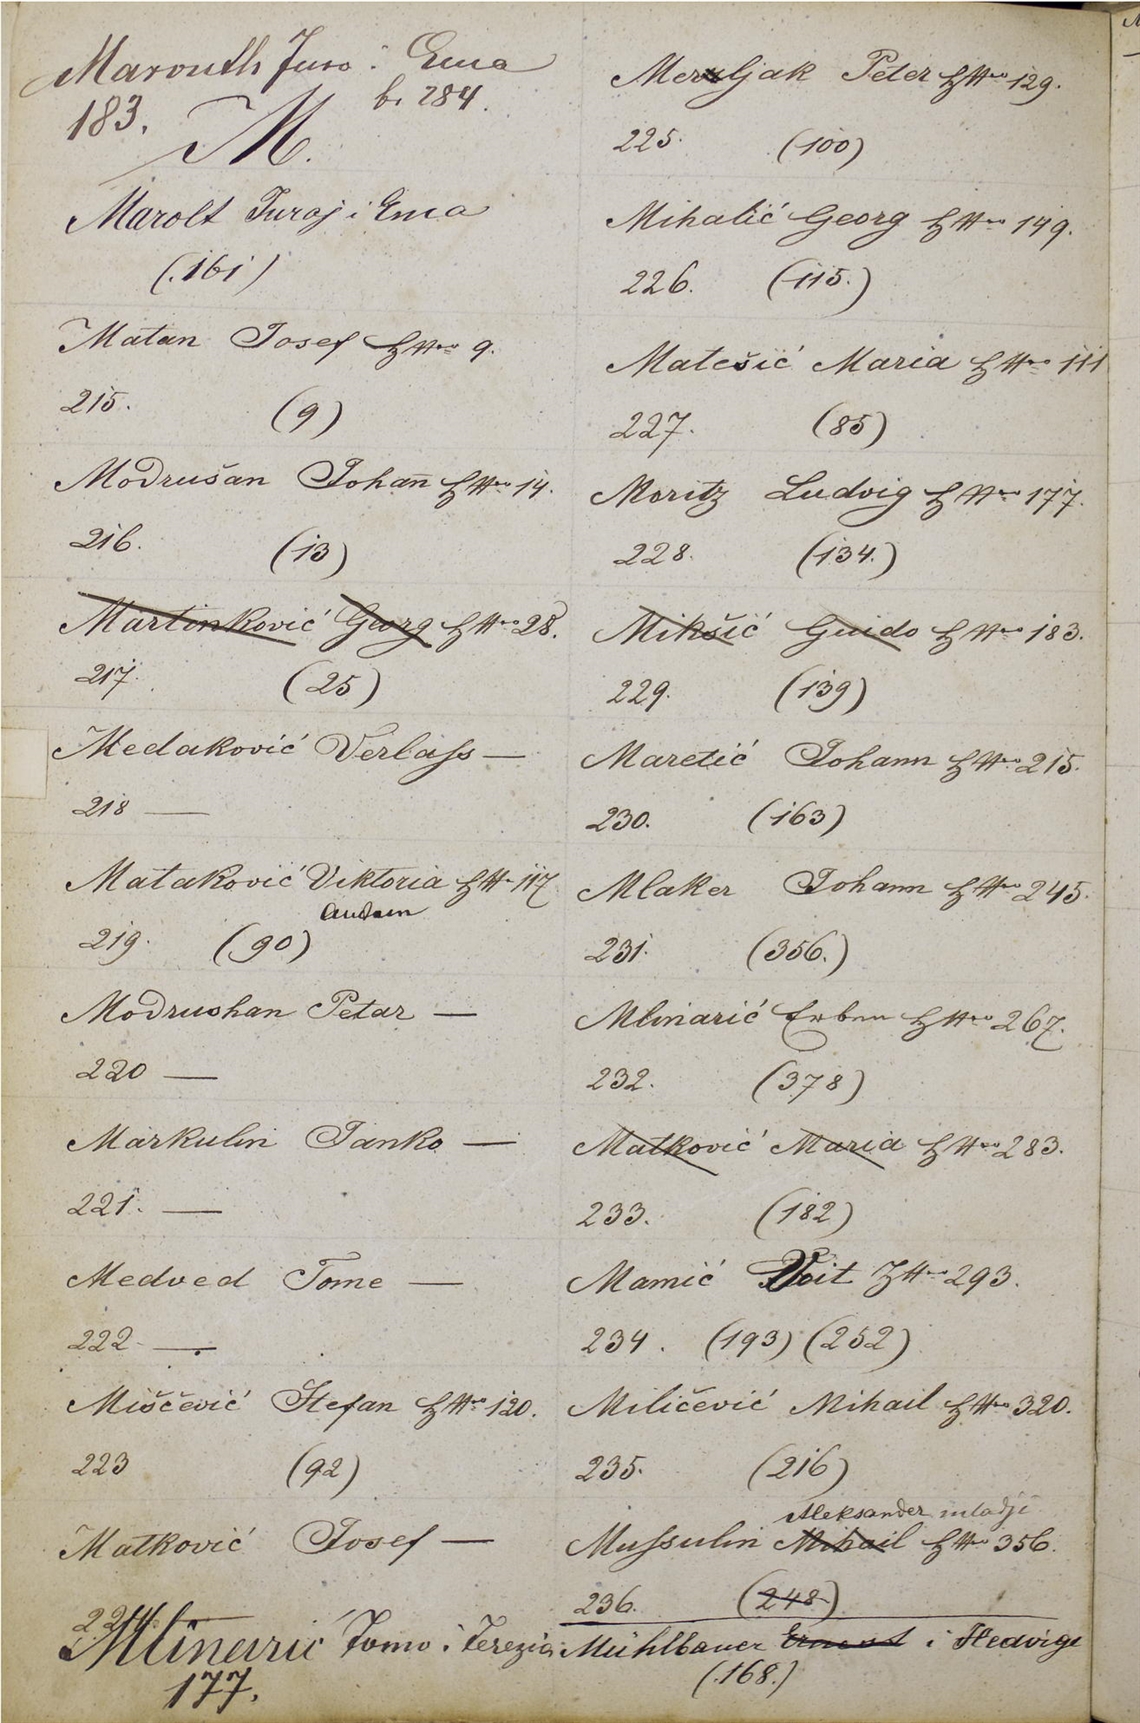 Marouth Juro i Ema
183. b. 284.
M.
Marolt Juraj i Ema
(161)
Matan Josef HNro 9.
215. (9)
Modrušan Johan̄ HNro 14.
216. (13)
Martinković Georg HNro 28.
217. (25)
Medaković Verlaſs —
218 —
Mataković Viktoria HNr 117
219. (90)
Modrushan Petar —
220 —
Markulin Janko —
221. —
Medved Tome —
222 —
Miščević Stefan HNro 120.
223 (92)
Matković Josef —
224
Mlinarić Tomo i Terezia
177.
Meruljak Peter HNro 129.
225. (100)
Mihalić Georg HNro 149.
226. (115.)
Matešić Maria HNro 111
227. (85)
Moritz Ludvig HNro 177.
228. (134.)
Mikšić Guido HNro 183.
229. (139)
Maretić Johann HNro 215.
230. (163)
Mlaker Johann HNro 245.
231. (356.)
Mlinarić Erben HNro 267.
232. (378)
Matković Maria HNro 283.
233. (182)
Mamić Voit HNro 293.
234. (193) (252)
Miličević Mihail HNro 320.
235. (216)
Aleksander mladji
Muſsulin Mihail HNro 356.
236. (248)
Mühlbauer Ernest i Hedvige
(168.)